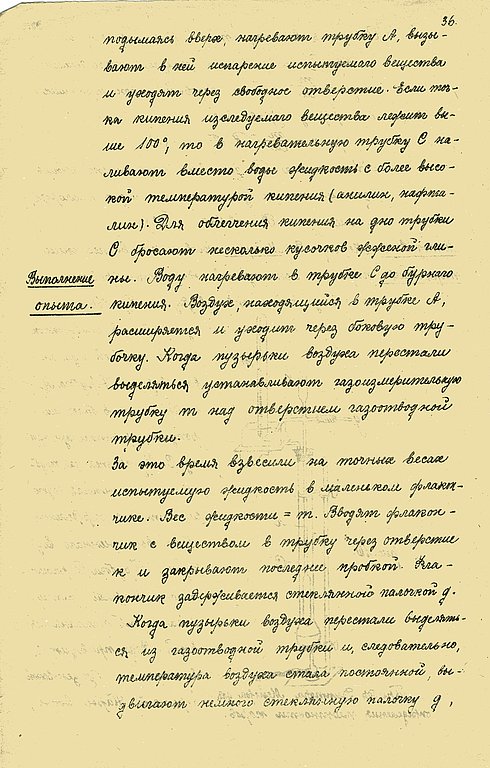 36.
подымаясь вверх, нагревают трубку А, вызы-
вают в ней испарение испытуемаго вещества
и уходят через свободное отверстие. Если точ-
ка кипения изследуемаго вещества лежит вы-
ше 100°, то в нагревательную трубку С на-
ливают вместо воды жидкость с более высо-
кой температурой кипения (анилин, нафта-
лин). Для облегчения кипения на дно трубки
С бросают несколько кусочков жженой гли-
Выполнение опыта.
ны. Воду нагревают в трубке С до бурнаго
кипения. Воздух, находящийся в трубке А,
расширяется и уходит через боковую тру-
бочку. Когда пузырьки воздуха перестали
выделяться устанавливают газоизмерительную
трубку m над отверстием газоотводной
трубки.
За это время взвесили на точных весах
испытуемую жидкость в маленьком флакон-
чике. Вес жидкости = m. Вводят флакон-
чик с веществом в трубку через отверстие
к и закрывают последнее пробкой. Фла-
кончик задерживается стеклянной палочкой g.
Когда пузырьки воздуха перестали выделять-
ся из газоотводной трубки и, следовательно,
температура воздуха стала постоянной, вы-
двигают немного стеклянную палочку g,